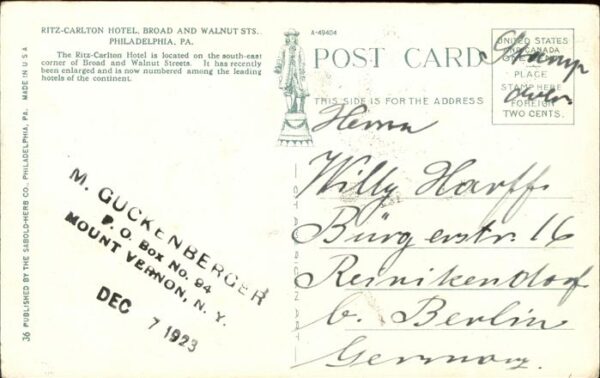 RITZ-CARLTON HOTEL, BROAD AND WALNUT STS.,
PHILADELPHIA, PA.
The Ritz-Carlton Hotel is located on the south-east
corner of Broad and Walnut Streets. It has recently
been enlarged and is now numbered among the leading
hotels of the continent.
36 PUBLISHED BY THE SABOLD-HERB CO. PHILADELPHIA, PA. MADE IN U S A
M. GUCKENBERGER
P. O. Box No. 94
MOUNT VERNON, N. Y.
DEC 7 1923
A-49404
POST CARD
THIS SIDE IS FOR THE ADDRESS
UNITED STATES
AND CANADA
ONE
PLACE
STAMP HERE
FOREIGN
TWO CENTS.
Stamp
Herrn
Willy Harff.
Bürgerstr. 16
Reinikendorf
b. Berlin
Germany.